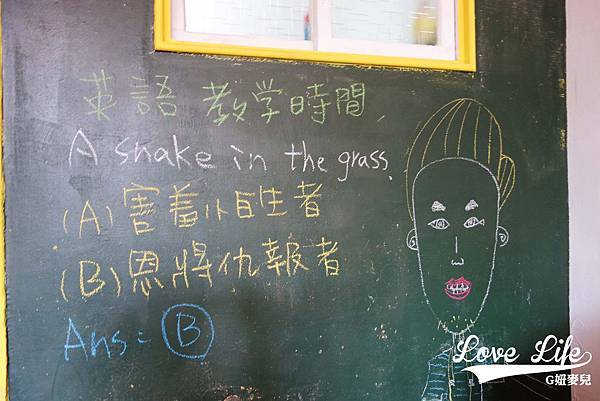 英語教学時間
A snake in the grass.
(A)害羞小姓者
(B)恩將仇報者
Ans: B
Love Life
G妞麥兒